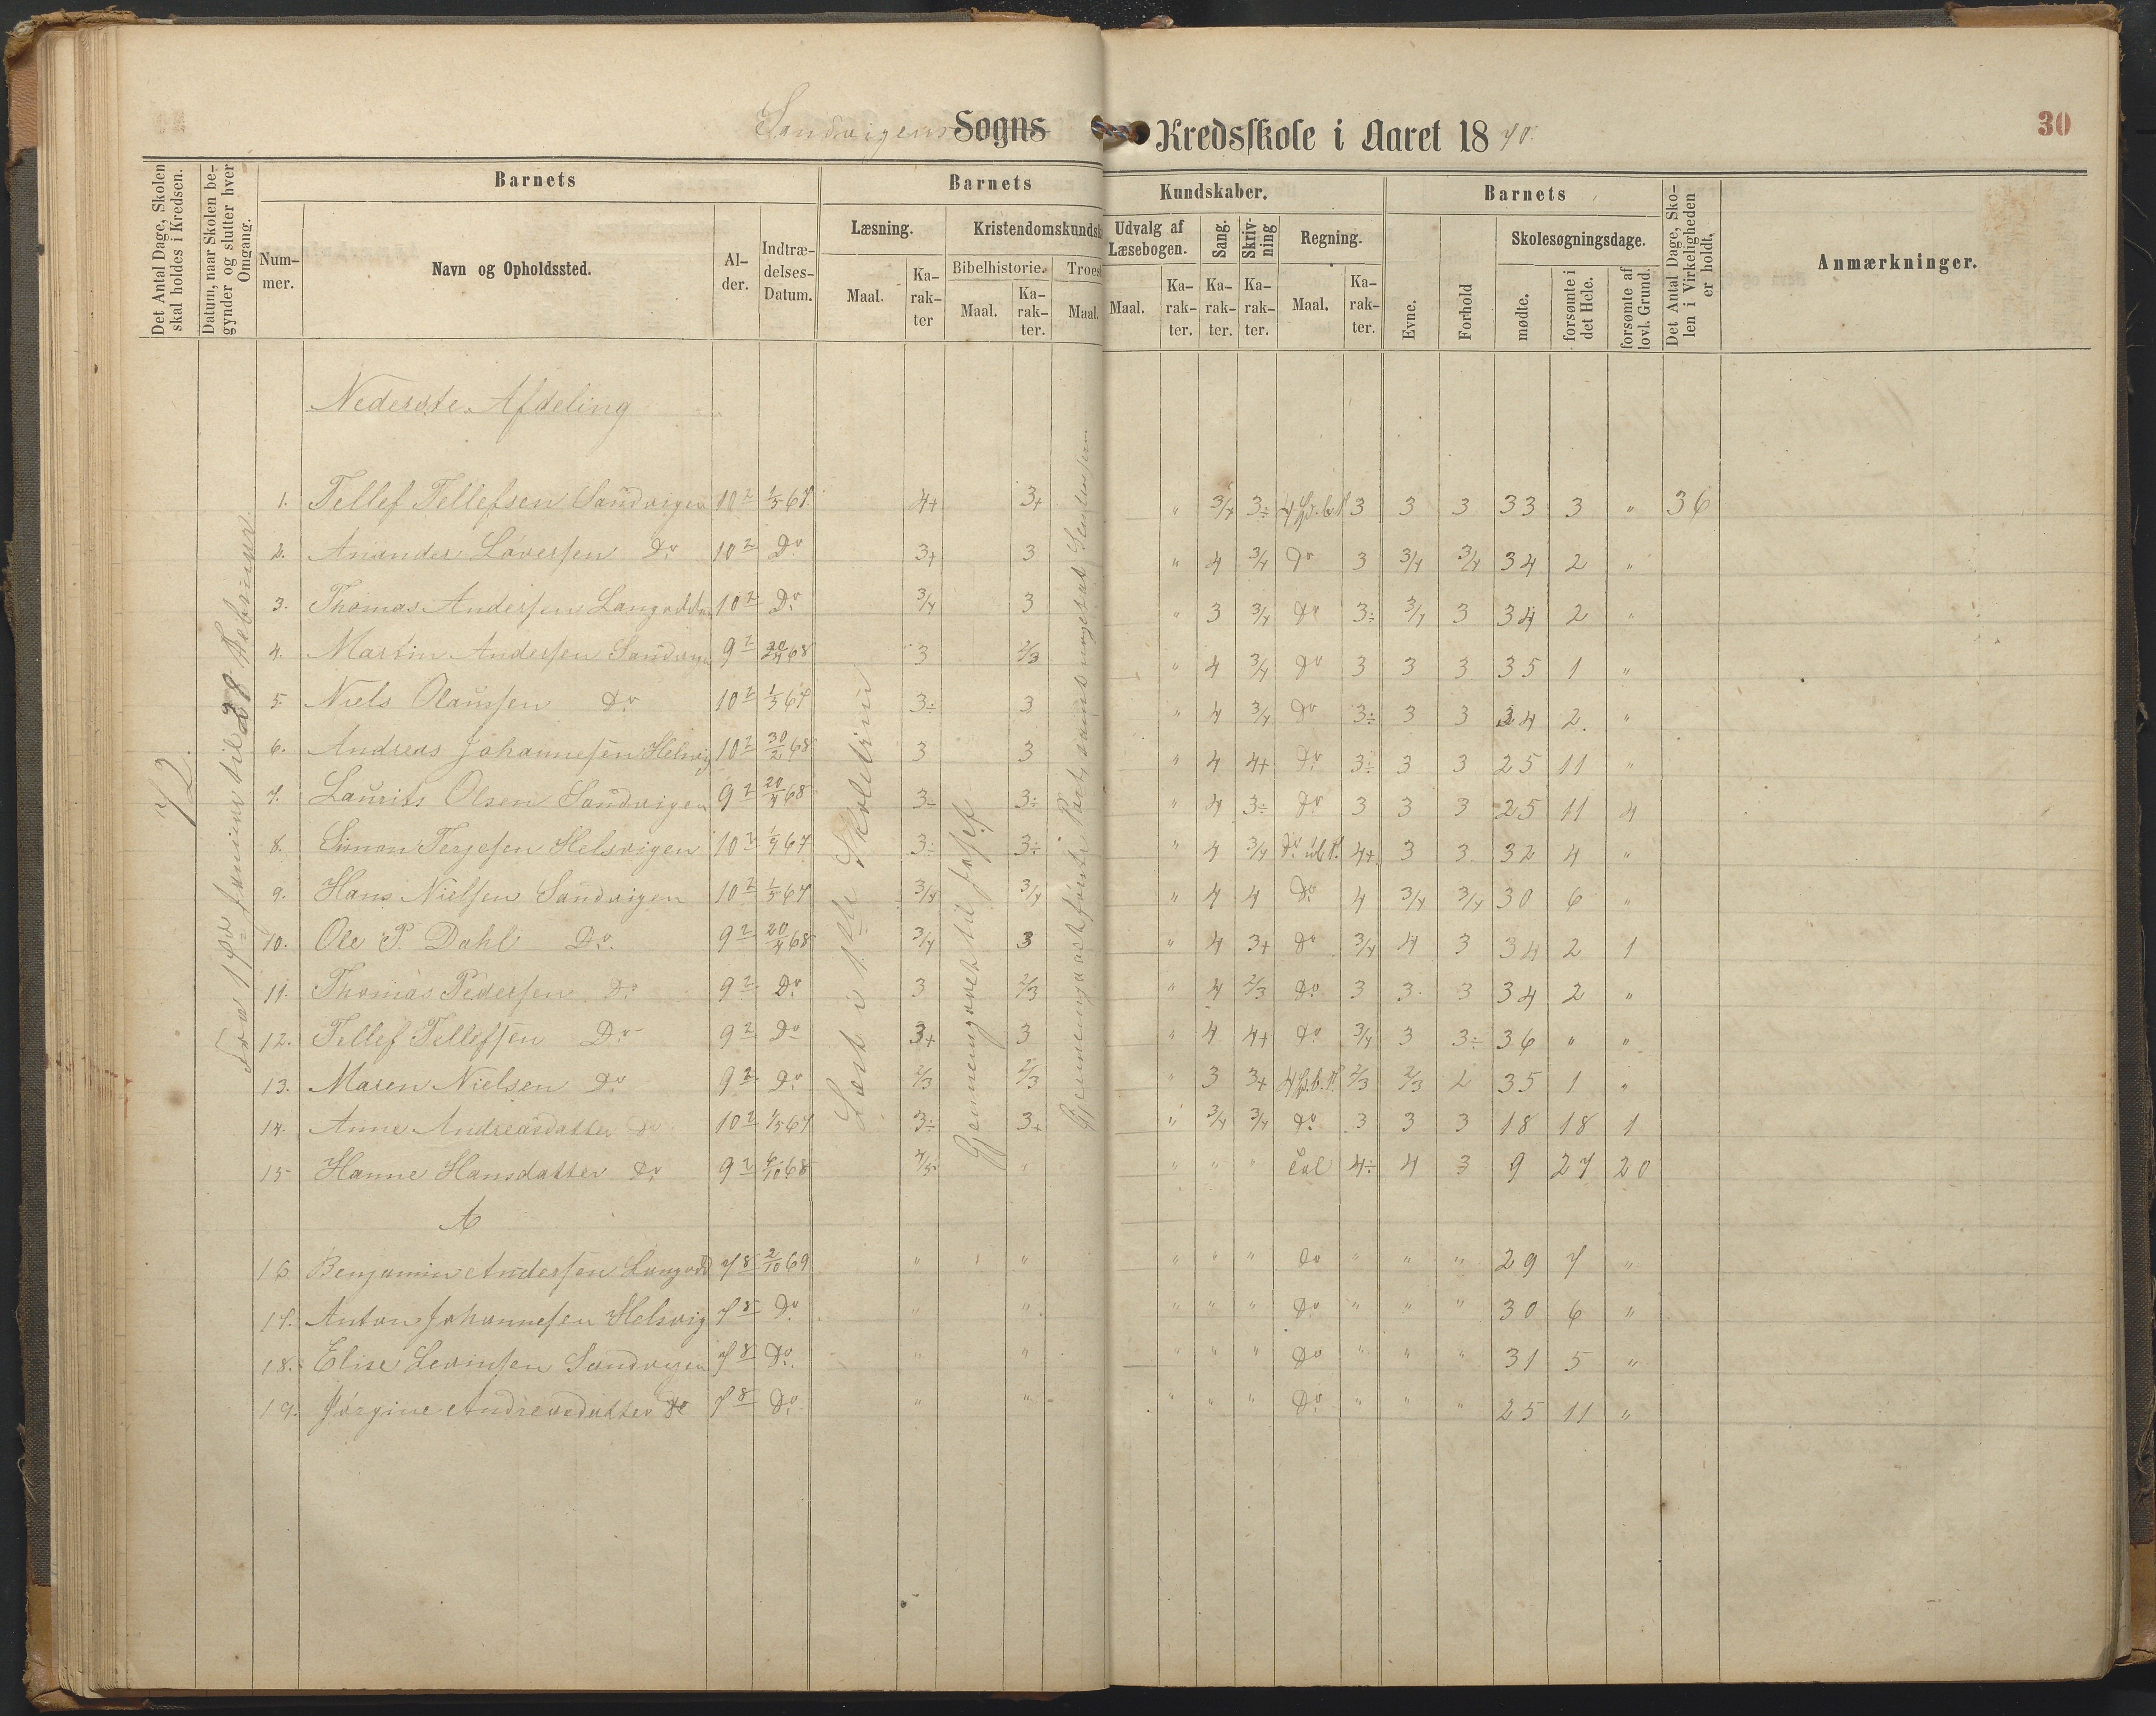 Sandvigens Sogns Kredsskole i Aaret 1870. 30
Det Antal Dage, Skolen skal holdes i Kredsen.
Datum, naar Skolen begynder og slutter hver Omgang.
Barnets
Num-
mer.
Navn og Opholdssted.
Al-
der.
Indtræ-
delses-
Datum.
Barnets
Læsning.
Maal.
Ka-
rak-
ter
Kristendomskundsk
Bibelhistorie.
Maal.
Ka-
rak-
ter.
Troes
Maal.
Kundskaber.
Udvalg af
Læsebogen.
Maal.
Ka-
rak-
ter.
Sang.
Ka-
rak-
ter.
Skriv-
ning
Ka-
rak-
ter.
Regning.
Maal.
Ka-
rak-
ter.
Barnets
Evne.
Forhold
Skolesøgningsdage.
mødte.
forsømte i
det Hele.
forsømte af
lovl. Grund.
Det Antal Dage, Sko-
len i Virkeligheden
er holdt.
Anmærkninger.
72.
Fra 17de Januar til 28 Februar
Læst i 1ste Skoletrin
Gjennemgaaet til Josef
Nederste Afdeling
1. Tellef Tellefsen Sandvigen 10 2 1/5 67 4+ 3+ " 3/4 3÷ 3 3 3 33 3 " 36
2. Do 10 2 Do 3+ 3 " 4 3/4 Do 3 3/4 3/4 34 2 "
3. Thomas Andersen Langodden 10 2 Do 3/4 3 " 3 3/4 Do 3÷ 3/4 3 34 2 "
4. Martin Andersen Sandvigen 9 2 20/4 68 3 2/3 " 4 3/4 Do 3 3 3 35 1 "
5. Niels Olaussen Do 10 2 1/5 67 3÷ 3 " 4 3/4 Do 3÷ 3 3 34 2. "
6. Andreas Johannesen Helsvig 10 2 30/2 68 3 3 " 4 4+ Do 3÷ 3 3 25 11 "
7. Laurits Olsen Sandvigen 9 2 20/4 68 3÷ 3÷ " 4 3÷ Do 3 3 3 25 11 4
8. Simon Terjesen Helsvigen 10 2 1/5 67 3÷ 3÷ " 4 3/4 Do 4+ 3 3 32 4 "
9. Hans Nielsen Sandvigen 10 2 1/5 67 3/4 3/4 " 4 4 Do 4 3/4 3/4 30 6 "
10. Ole P. Dahl Do. 9 2 20/4 68 3/4 3 " 4 3+ Do 3/4 4 3 34 2 1
11. Thomas Pedersen Do 9 2 Do 3 2/3 " 4 2/3 Do 3 3 3 34 2 "
12. Tellef Tellefsen Do 9 2 Do 3+ 3 " 4 4+ Do 3/4 3 3÷ 36 " "
13. Maren Nielsen Do 9 2 Do 2/3 2/3 " 3 3+ 2/3 2/3 2 35 1 "
14. Anne Andreasdatter Do 10 2 1/5 67 3÷ 3+ " 3/4 3/4 Do 3 3 3 18 18 1
15 Hanne Hansdatter Do 9 2 6/10 68 4/5 " " " " 4÷ 4 3 9 27 20
A
16. Benjamin Andersen Langodd 7 8 2/10 69 " " " " " Do " " " 29 7 "
17. Anton Johannesen Helsvig 7 8 Do " " " " " Do " " " 30 6 "
18. Elise Levinsen Sandvigen 7 8 Do " " " " " Do " " " 31 5 "
19. Jørgine Andreasdatter Do 7 8 Do " " " " " Do " " " 25 11 "